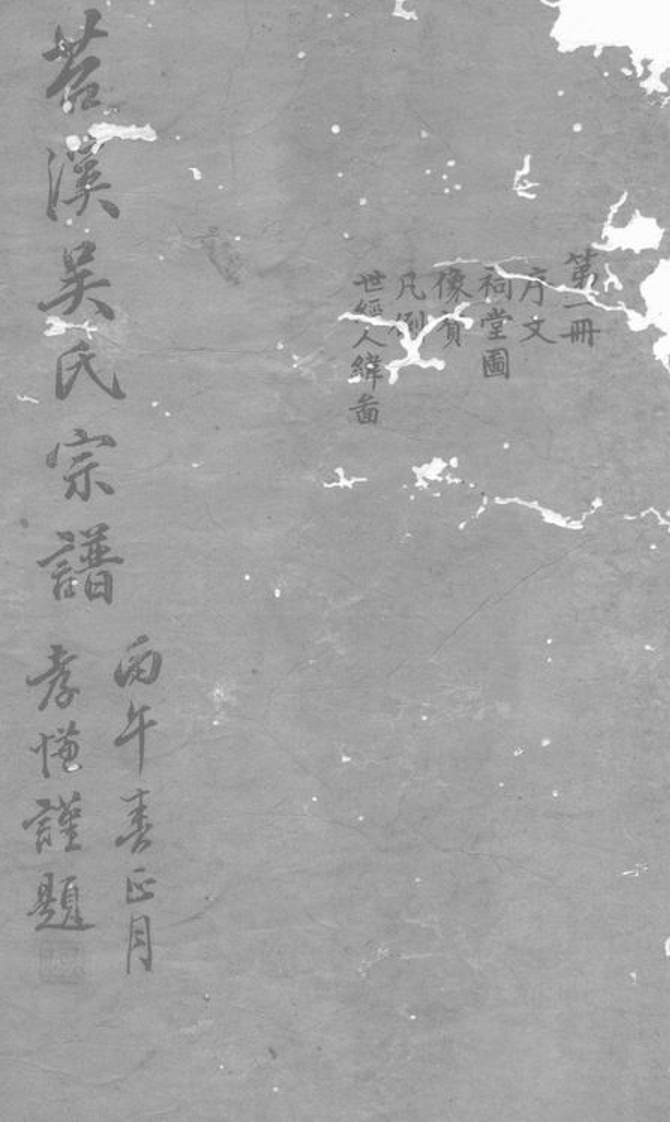 第一冊
序文
祠堂圖
像贊
凡例
世經人緯啚
丙午春正月
苕溪吴氏宗譜
孝謹題